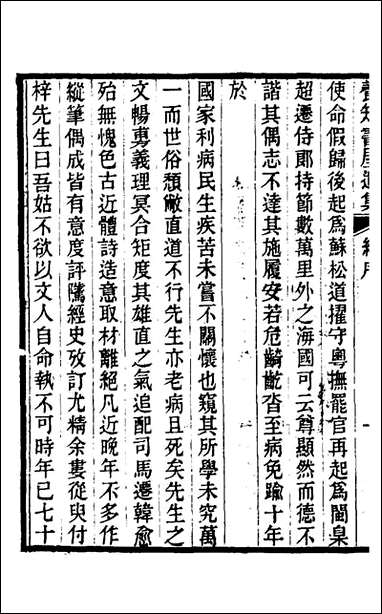 養知書屋遺集 總序
使命假歸後起爲蘇松道擢守粵撫罷官再起爲閩臬
超遷侍郞持節數萬里外之海國可云尊顯然而德不
諧其偶志不達其施履安若危齮齕沓至病免踰十年
於
國家利病民生疾苦未嘗不關懷也窺其所學未究萬
一而世俗頹敝直道不行先生亦老病且死矣先生之
文暢勇義理冥合矩度其雄直之氣追配司馬遷韓愈
殆無愧色古近體詩造意取材離絕凡近晚年不多作
縱筆偶成皆有意度評隲經史攷訂尤精余婁從臾付
梓先生曰吾姑不欲以文人自命執不可時年已七十